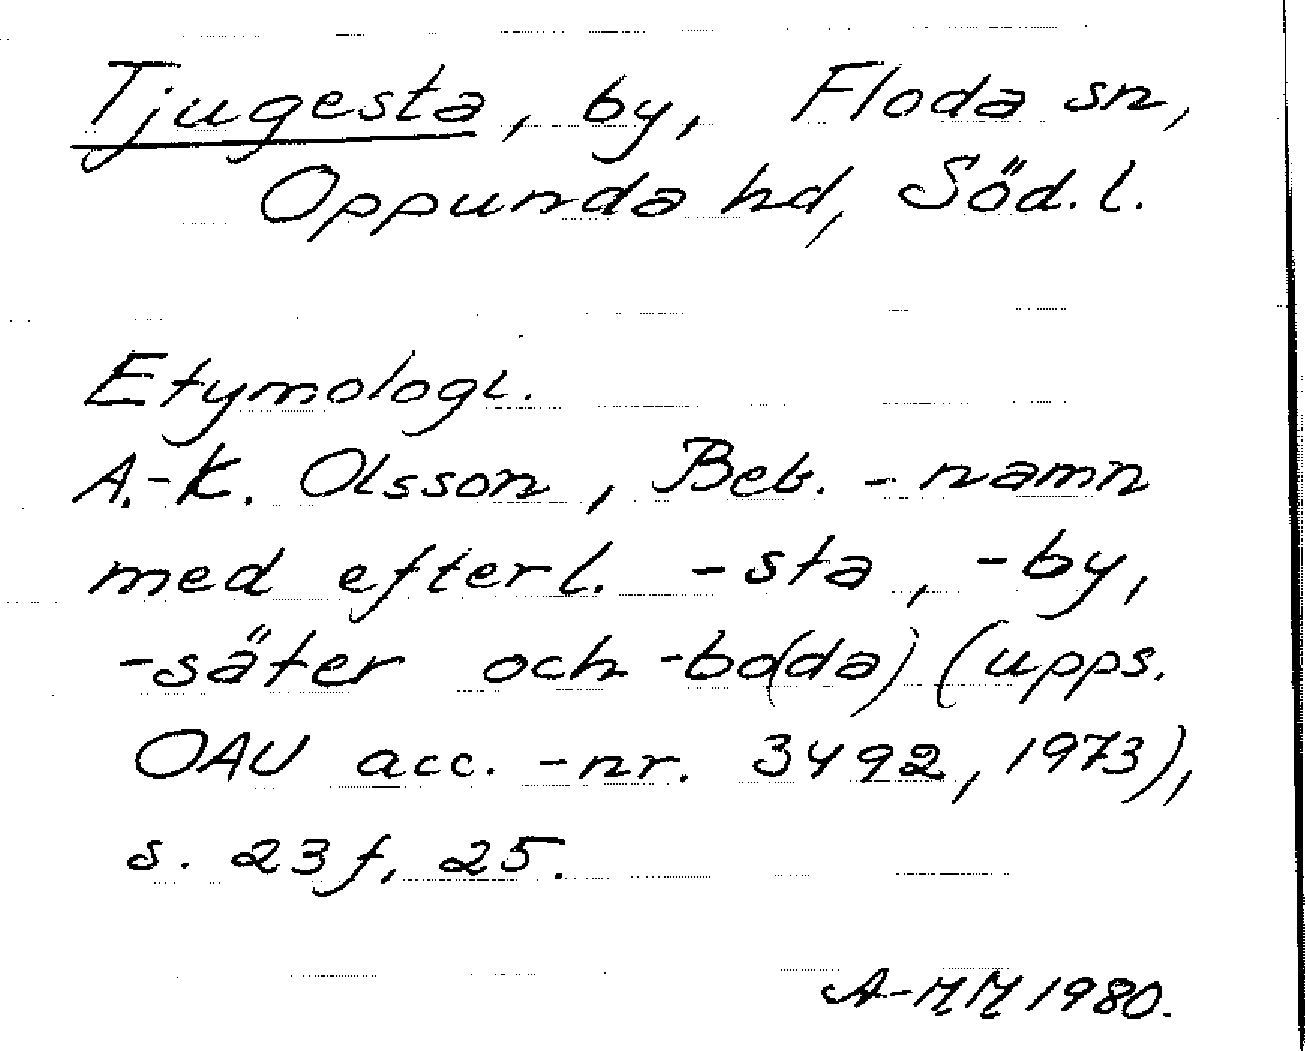 Tjugesta, by, Floda sn,
Oppunda hd, Söd. l.
Etymologi.
A.-K. Olsson, Beb. - namn
med efterl. -sta, -by,
-säter och -bo(da) (upps.
OAU acc. -nr. 3492, 1973),
s. 23 f, 25.
A-MM 1980.